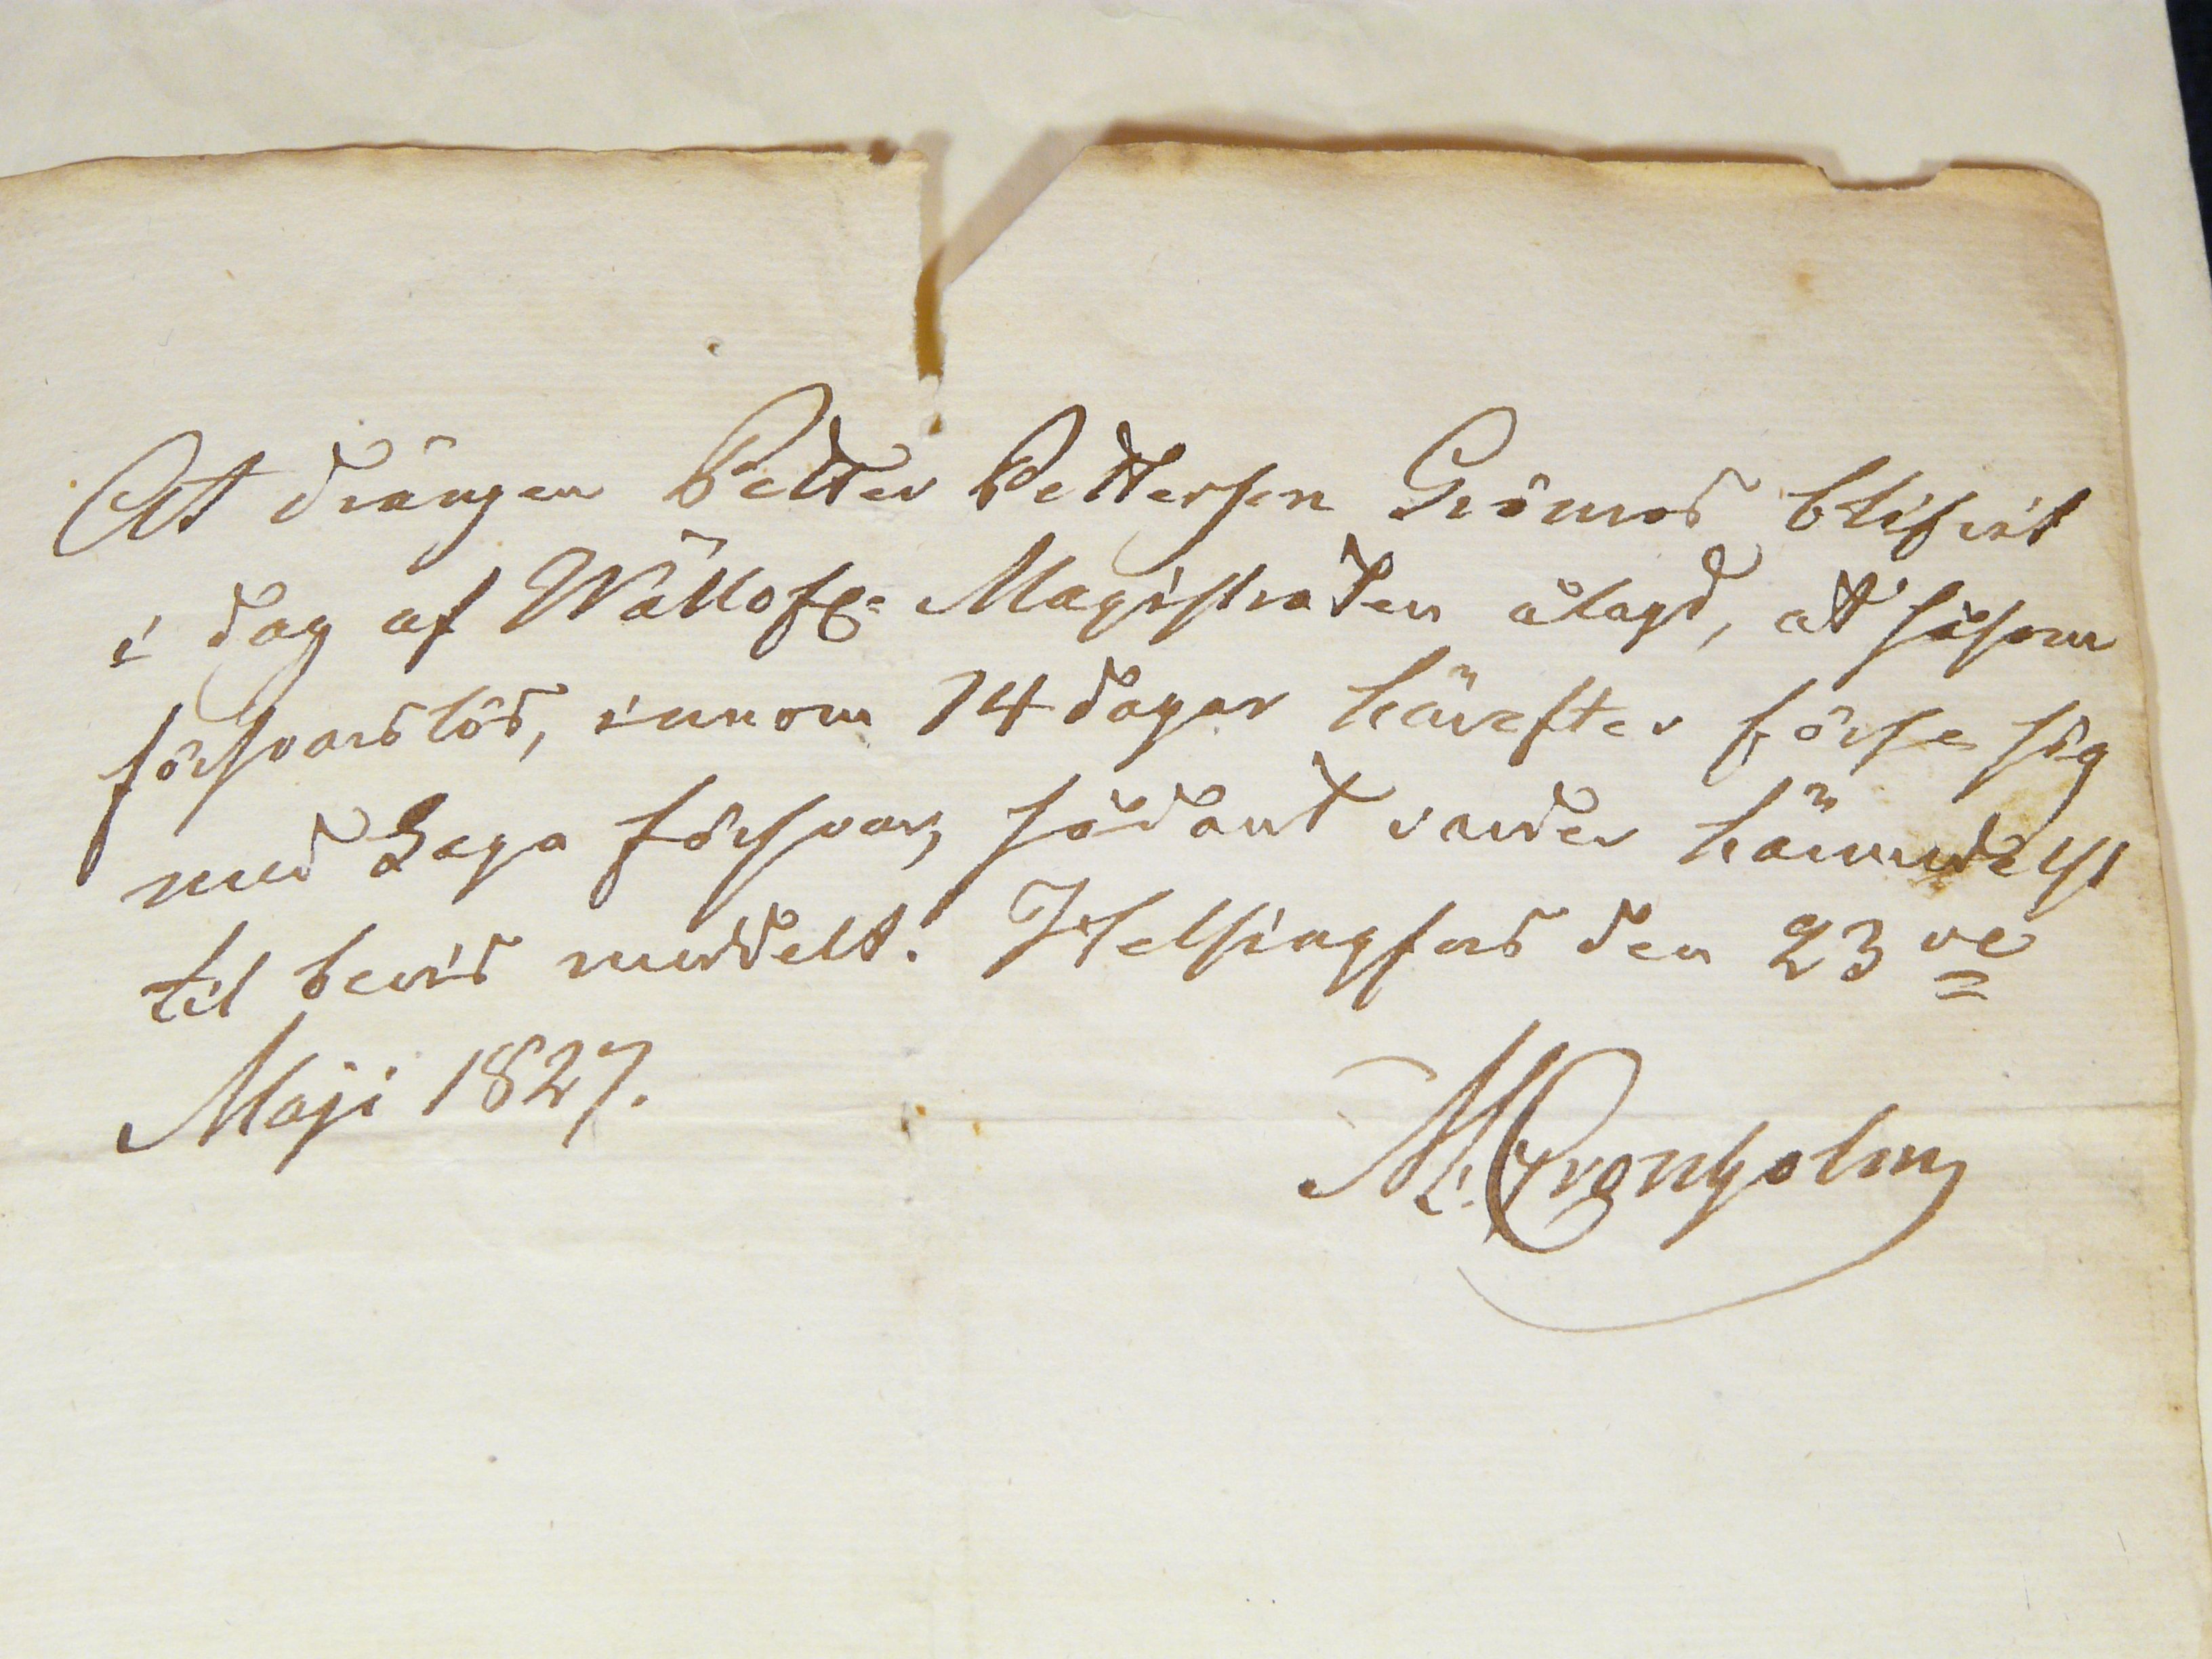 At drängen Petter Pettersson Grönros blifvit
i dag af Wällofl: Magistraten ålagd, at såsom
försvarslös, innom 14 dagar härefter förse sig
med Laga försvar, sådant varder härmedelst
til bevis meddelt. Helsingfors den 23
Maji 1827.